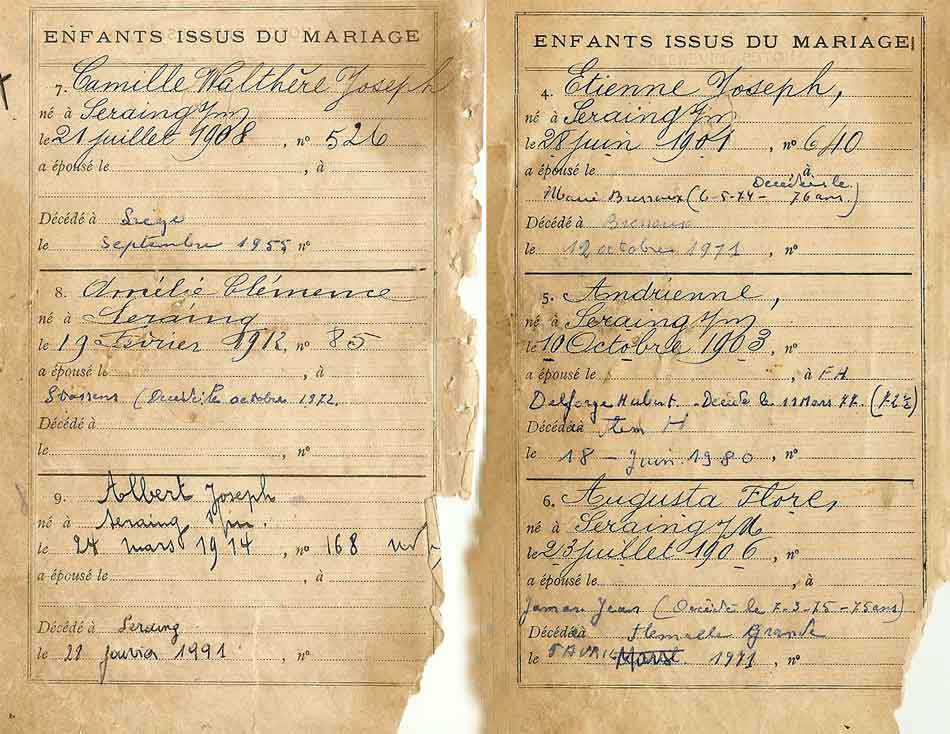 ENFANTS ISSUS DU MARIAGE
7. Camille Walthère Joseph
né à Seraing s/m
le 21 juillet 1908, n° 526
a épousé le , à
Décédé à Liège
le Septembre 1955 n°
8. Amélie Clémence
né à Seraing
le 19 Février 1912, n° 85
a épousé le , à
(Décédé le octobre 1972.
Décédé à
le , n°
9. Albert Joseph
né à Seraing s/m.
le 24 mars 1914, n° 168
a épousé le , à
Décédé à Seraing
le 21 janvier 1991, n°
ENFANTS ISSUS DU MARIAGE
4. Etienne Joseph,
né à Seraing s/m
le 28 juin 1901, n° 640
a épousé le à
Décédée le
Marie Bressoux (6-5-74- 76 ans)
Décédé à Bressoux
le 12 octobre 1971, n°
5. Andrienne,
né à Seraing s/m
le 10 Octobre 1903, n°
a épousé le , à FH
Delforge Hubert. Décédé le 11 Mars 77.
Décédé à H
le 18 - Juin 1980, n°
6. Augusta Flore,
né à Seraing s/M
le 23 juillet 1906, n°
a épousé le , à
Jean (Décédé le 7-3-75-75ans)
Décédé à Flemalle Grande
le 5 AVRIL 1971, n°